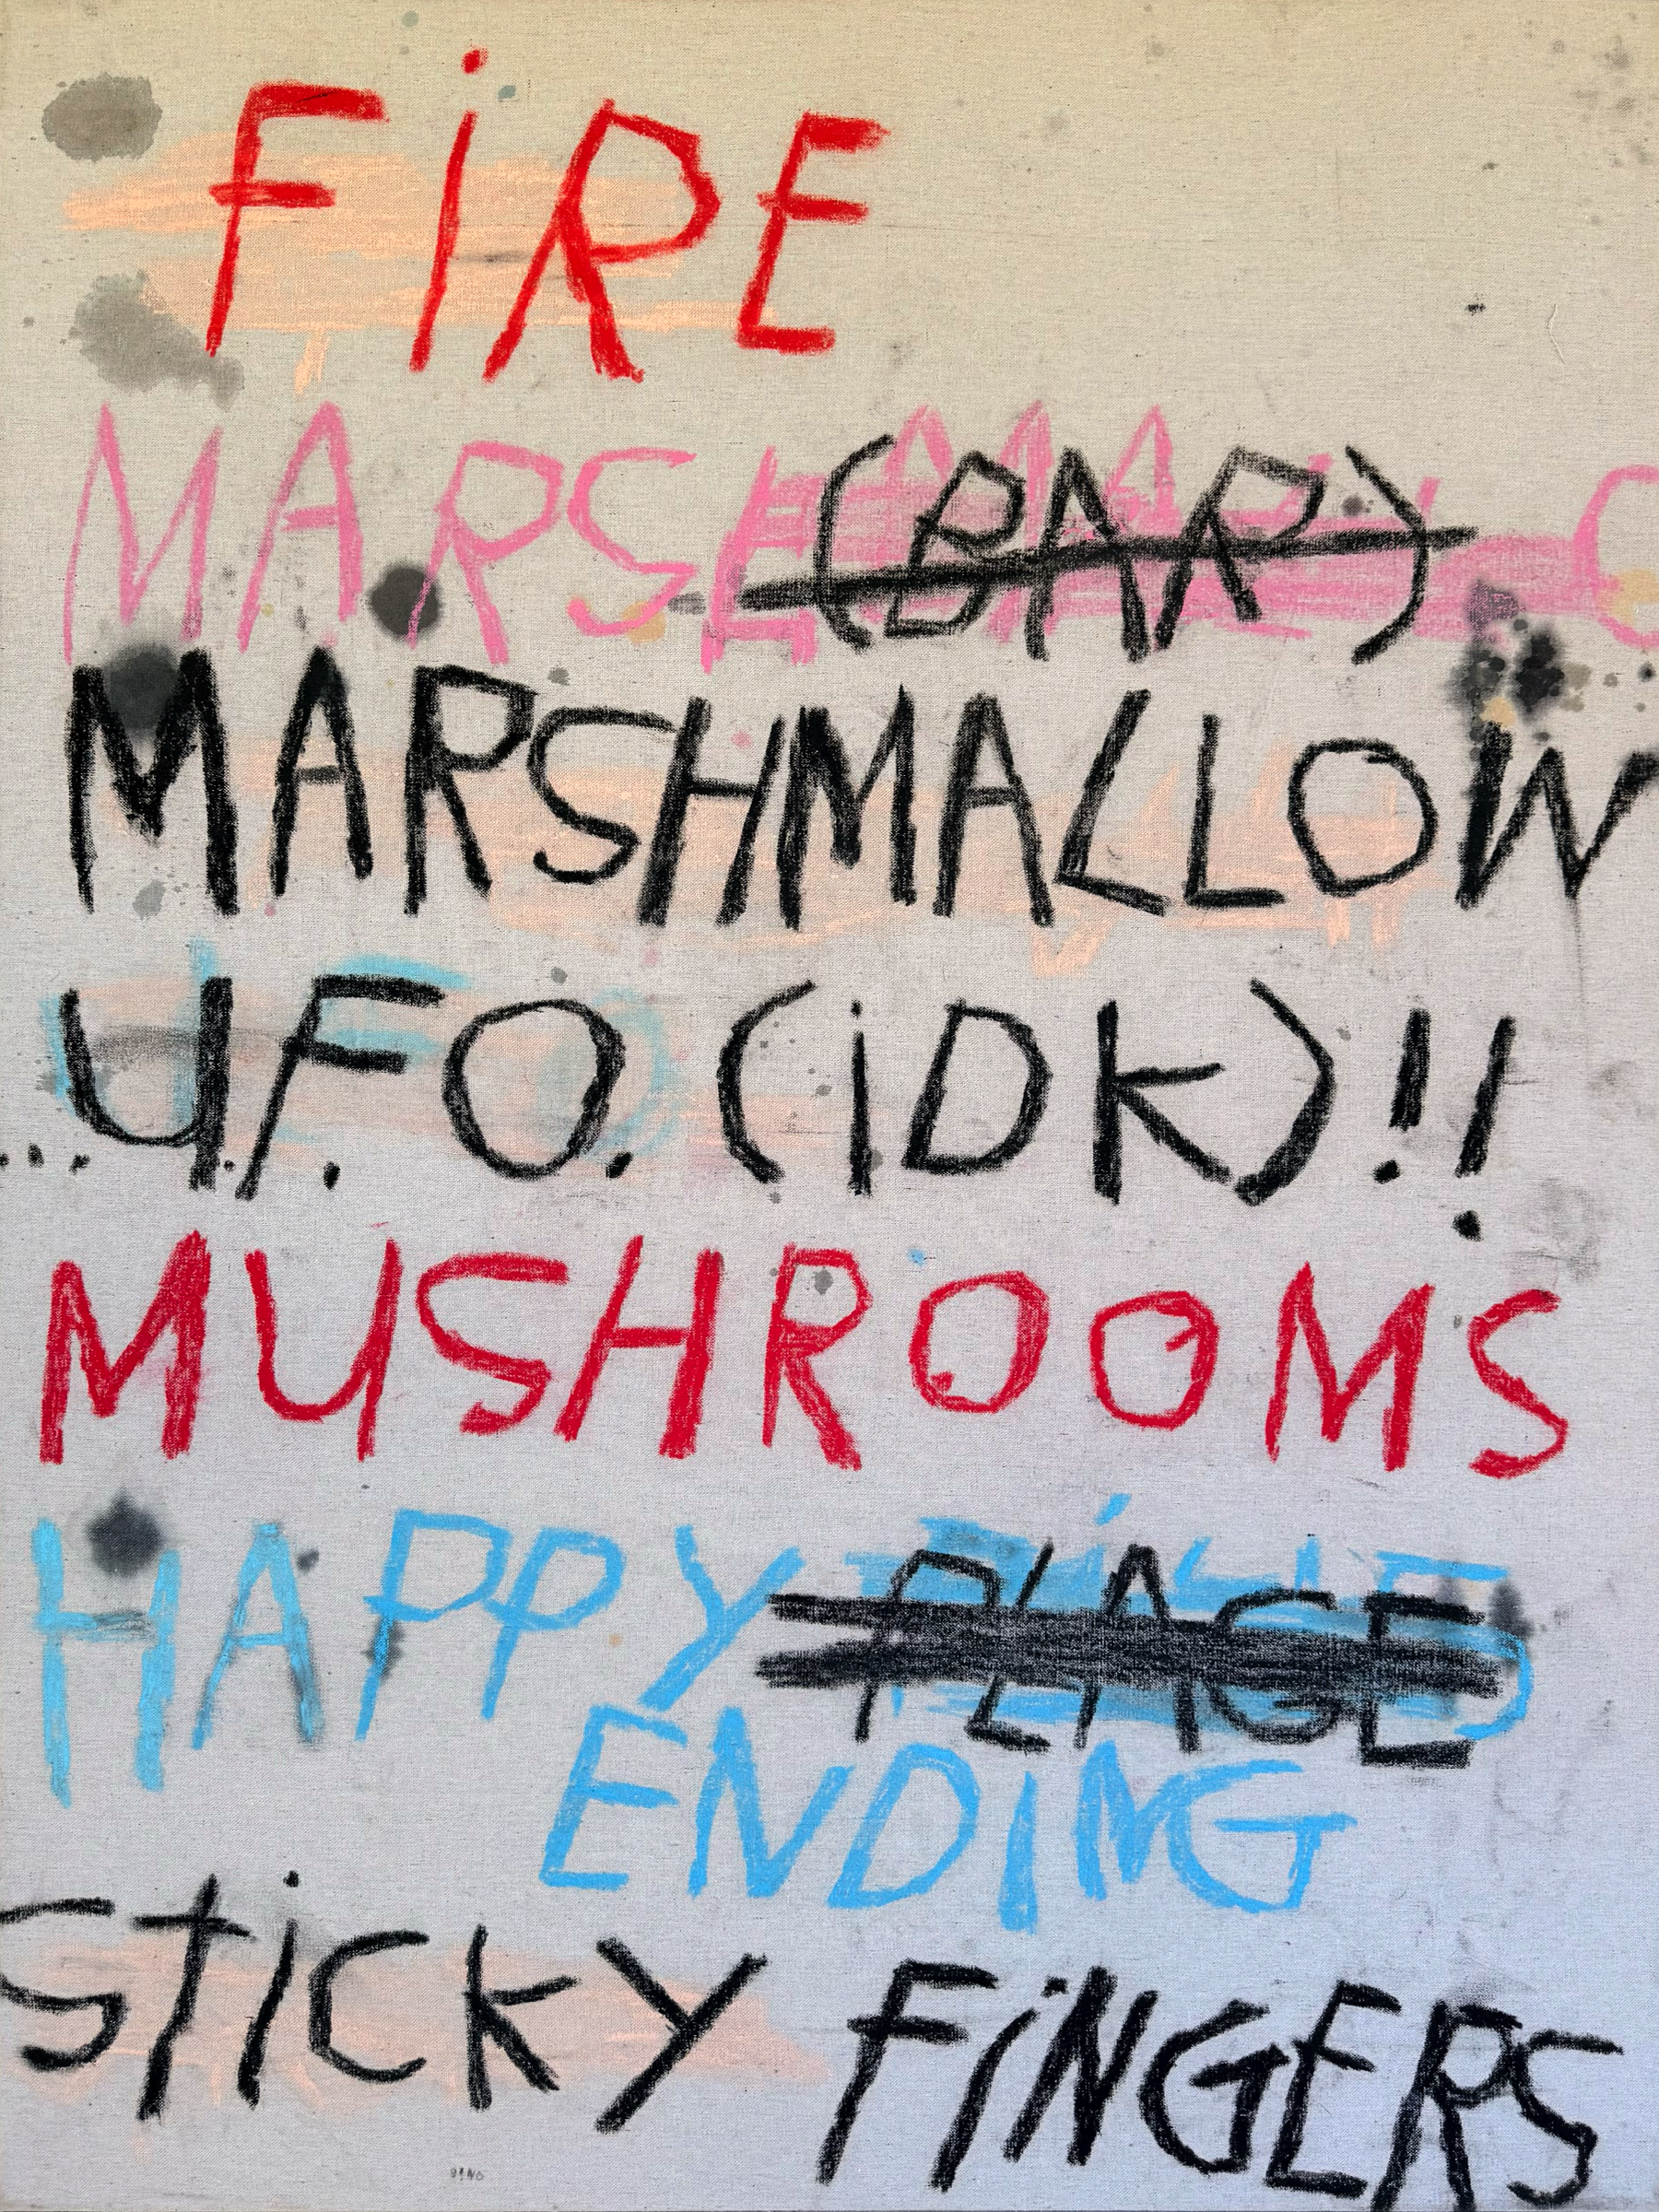 FiRE
MARS (BAR)
MARSHMALLOW
...U.F.O. (iDK)!!
MUSHROOMS
HAPPY PLACE
ENDiNG
StiCKY FiNGERS